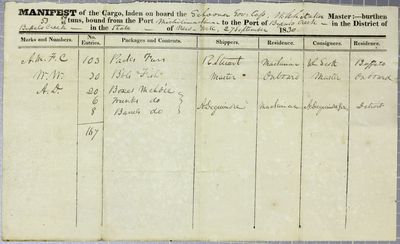 MANIFEST of the Cargo, laden on board the Schooner Gov. Cass Master:—burthen
53 tuns, bound from the Port Michilimackinac to the Port of Buffalo Creek in the District of
Buffalo Creek — in the State — of New York, 2 September 1830
Marks and Numbers. No. Entries. Packages and Contents. Shippers. Residence. Consignees. Residence.
A.M.F.C 103 Packs Furs R. Stuart Mackinac Scott Buffalo
W.W. 30 Bbls Fish Master Onboard Master Onboard
A.D. 20 Boxes
6 Trunks do
8 Barrels do A. Dequindre Mackinac A. Dequindre Detroit
167